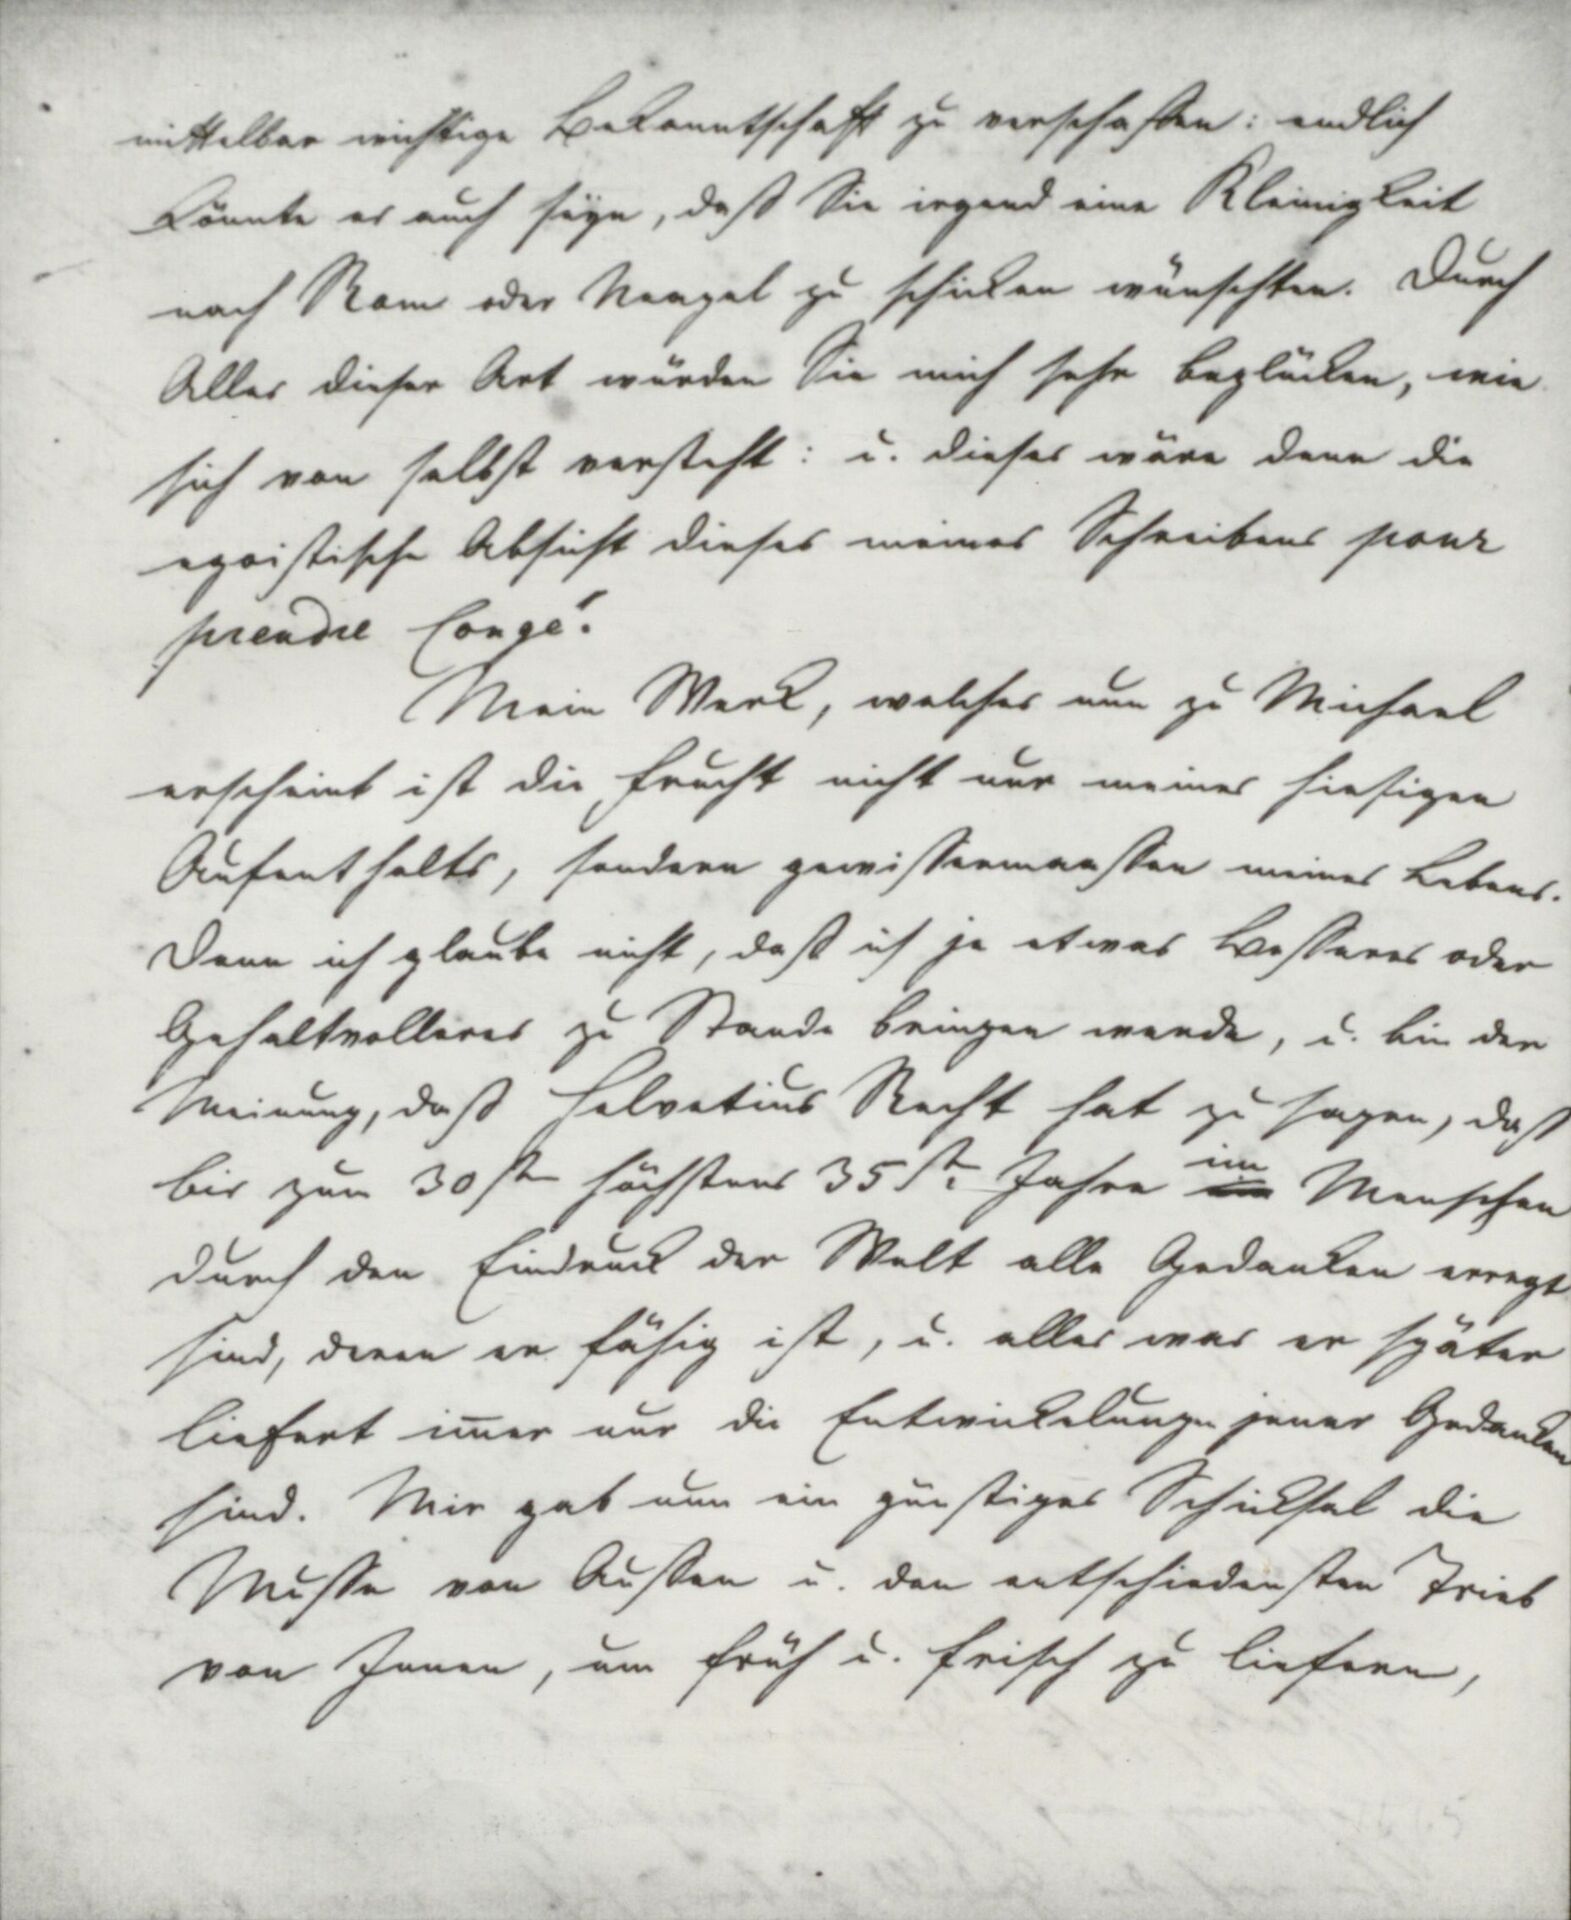 mittelbar wichtige Bekanntschaft zu verschaffen: endlich
könnte es auch seyn, daß Sie irgend eine Kleinigkeit
nach Rom oder Neapel zu schicken wünschten. Durch
Alles dieser Art würden Sie mich sehr beglücken, wie
sich von selbst versteht: u. dieses wäre denn die
egoistische Absicht dieses meines Schreibens pour
prendre congé.
Mein Werk, welches nun zu Michael
erscheint ist die Frucht nicht nur meines hiesigen
Aufenthalts, sondern gewissermaassen meines Lebens.
Denn ich glaube nicht, daß ich je etwas Besseres oder
Gehaltvolleres zu Stande bringen werde, u. bin der
Meinung, daß Helvetius Recht hat zu sagen, daß
bis zum 30sten höchstens 35sten Jahre im Menschen
durch den Eindruck der Welt alle Gedanken erregt
sind, deren er fähig ist, u. alles was er später
liefert im̅er nur die Entwickelungen jener Gedanken
sind. Mir gab nun ein günstiges Schicksal die
Musse von Aussen u. den entschiedensten Trieb
von Innen, um früh u. frisch zu liefern,